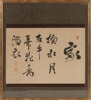 家
掬水月
在手
弄花香
満衣